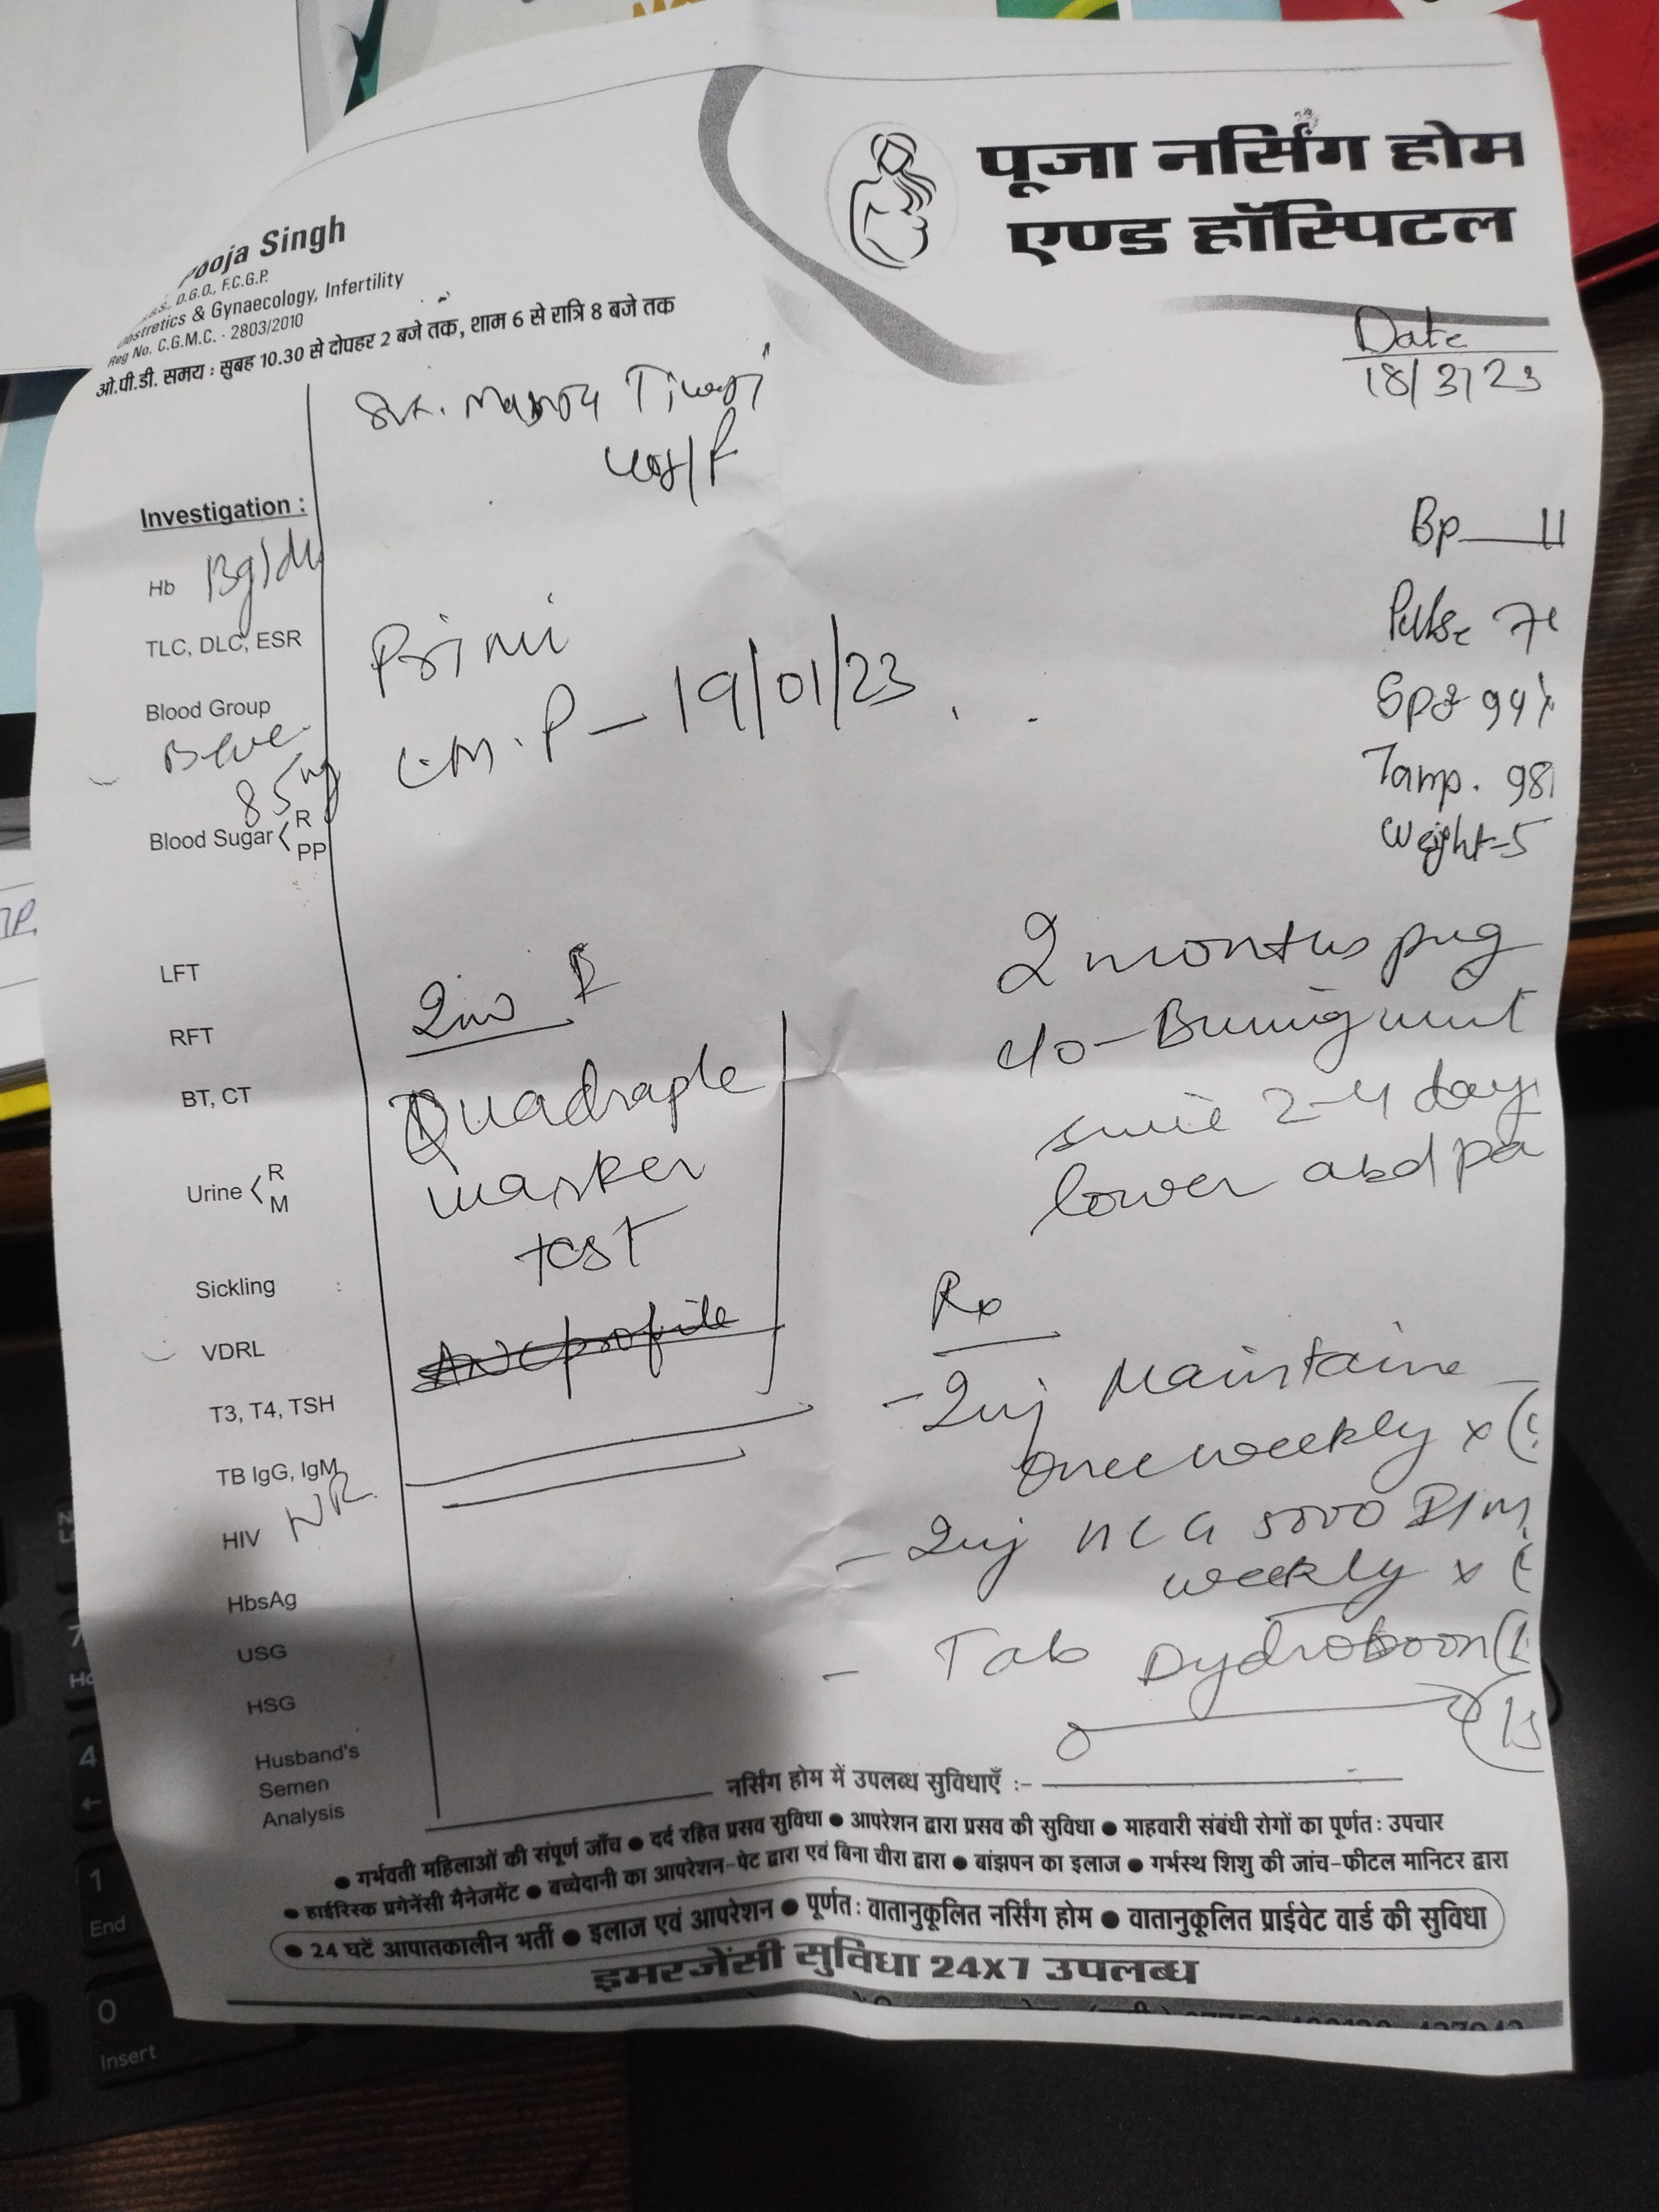 पूजा नर्सिंग होम
एण्ड हॉस्पिटल
Pooja Singh
D.G.O., F.C.G.P.
Obstretics & Gynaecology, Infertility
Reg No. C.G.M.C. - 2803/2010
ओ.पी.डी. समय : सुबह 10.30 से दोपहर 2 बजे तक, शाम 6 से रात्रि 8 बजे तक
Date
18/3/23
Investigation :
Bp
Hb 13g/dl
Pulse
TLC, DLC, ESR
Primi
Blood Group
L.M.P - 19/01/23
94%
B +ve
Tamp. 98
85 mg
Blood Sugar < R
PP
Weight-5
LFT
2 months preg
RFT
Inv
c/o - Burning mict
BT, CT
Quadraple
since 2-4 day
Urine < R
M
marker
lower abd pa
test
Sickling
Rx
VDRL
ANC profile
- Inj Maintaine
T3, T4, TSH
once weekly x (
TB IgG, IgM
HIV NR
- Inj HCG 5000 I/M
weekly x (
HbsAg
- Tab Dydroboon (
USG
HSG
Husband's
Semen
Analysis
नर्सिंग होम में उपलब्ध सुविधाएँ :-
● गर्भवती महिलाओं की संपूर्ण जाँच ● दर्द रहित प्रसव सुविधा ● आपरेशन द्वारा प्रसव की सुविधा ● माहवारी संबंधी रोगों का पूर्णत: उपचार
● हाईरिस्क प्रगेनेंसी मैनेजमेंट ● बच्चेदानी का आपरेशन-पेट द्वारा एवं बिना चीरा द्वारा ● बांझपन का इलाज ● गर्भस्थ शिशु की जांच-फीटल मानिटर द्वारा
● 24 घटें आपातकालीन भर्ती ● इलाज एवं आपरेशन ● पूर्णत: वातानुकूलित नर्सिंग होम ● वातानुकूलित प्राईवेट वार्ड की सुविधा
इमरजेंसी सुविधा 24x7 उपलब्ध
4
1
End
0
Insert